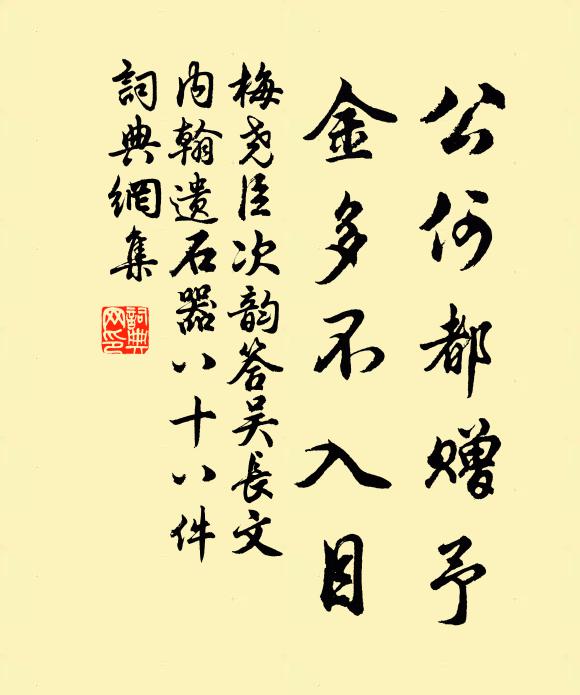 公何都赠予
金多不入目
梅尧臣次韵答吴長文
内翰遗石器八十八件
詞典網集
詞典网印